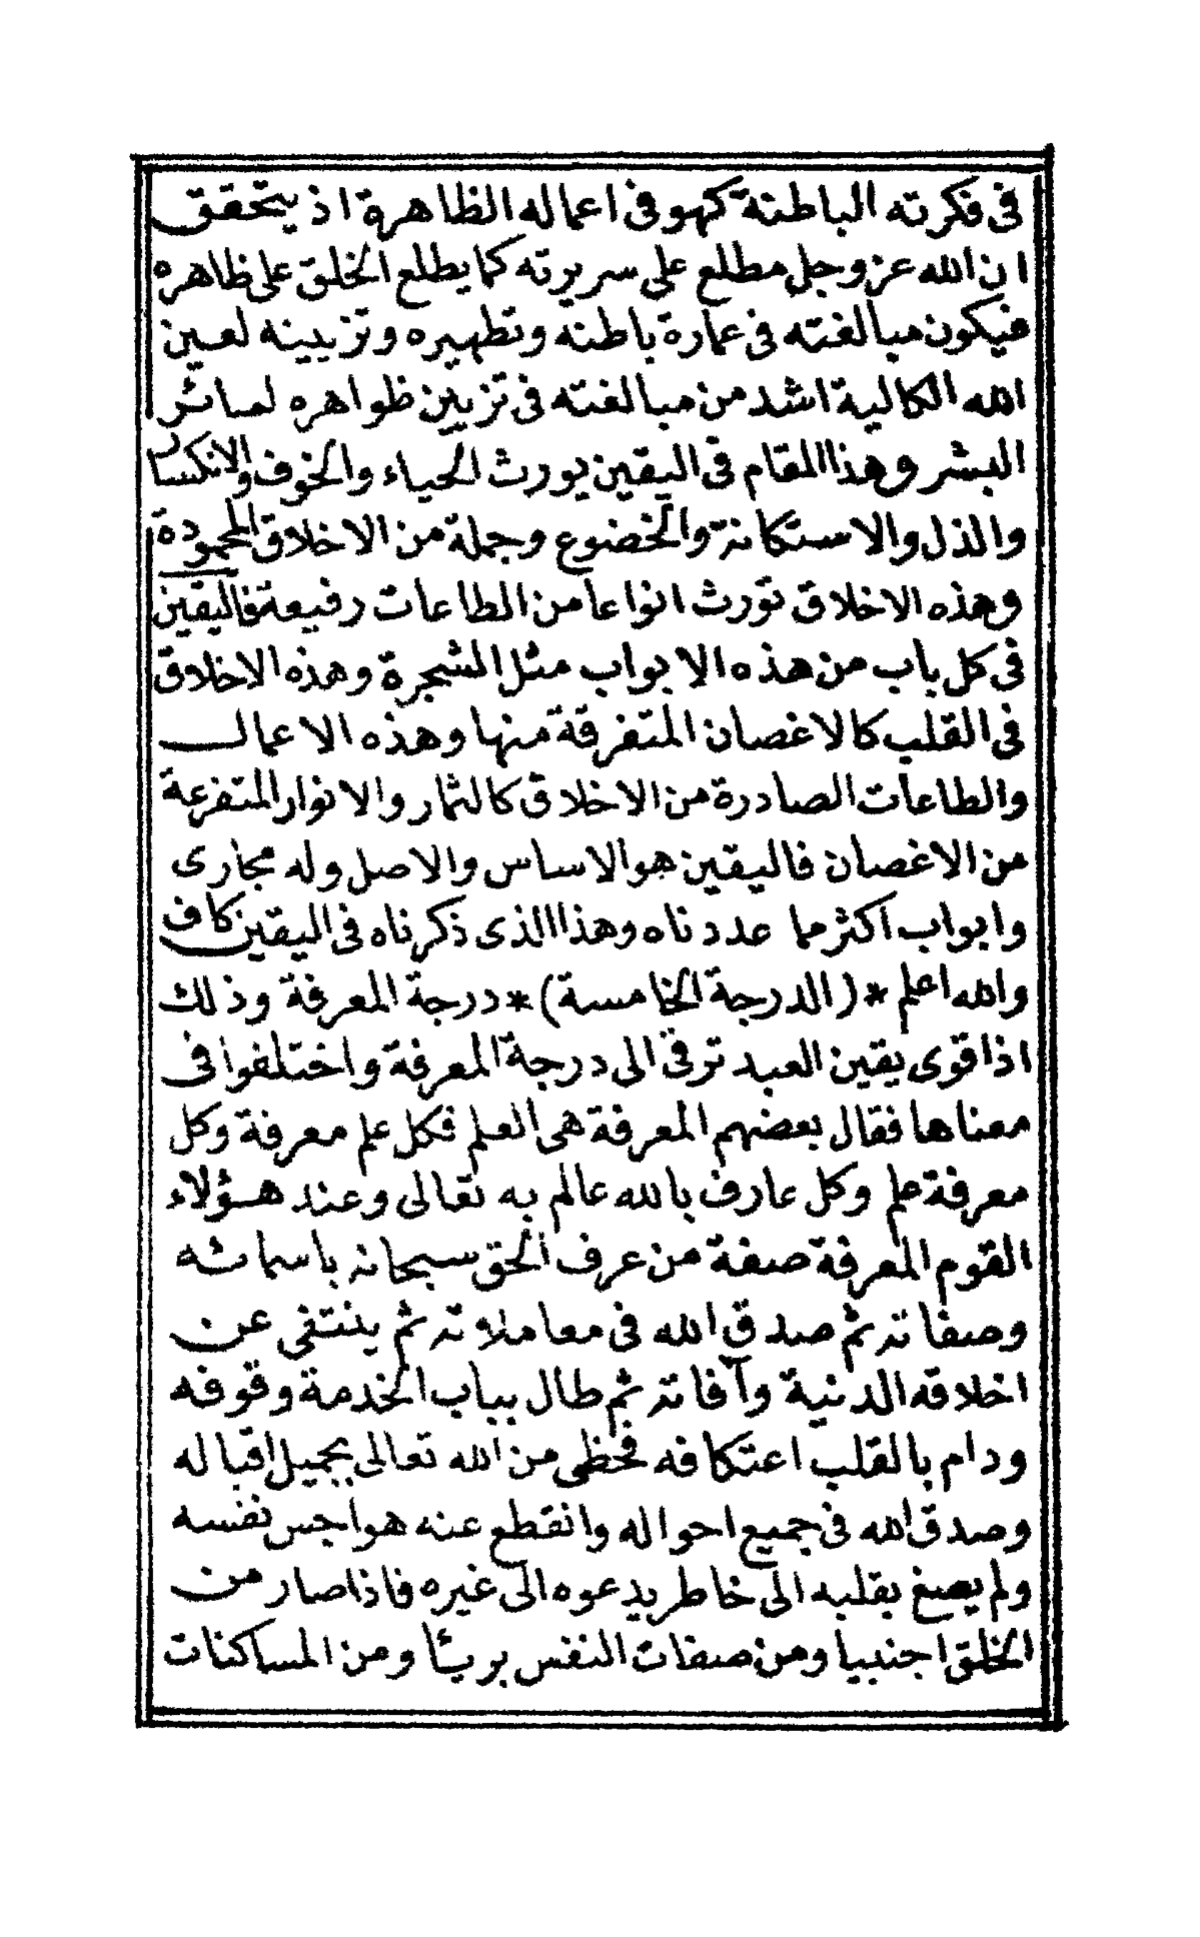 فى فكرته الباطنة كهو فى اعماله الظاهرة اذ يتحقق
ان الله عز وجل مطلع على سريرته كما يطلع الخلق على ظاهره
فيكون مبالغته فى عمارة باطنه وتطهيره وتزيينه لعين
الله الكالية اشد من مبالغته فى تزيين ظواهره لسائر
البشر وهذا المقام فى اليقين يورث الحياء والخوف والانكسار
والذل والاستكانة والخضوع وجملة من الاخلاق المحمودة
وهذه الاخلاق تورث انواعا من الطاعات رفيعة فاليقين
فى كل باب من هذه الابواب مثل الشجرة وهذه الاخلاق
فى القلب كالاغصان المتفرقة منها وهذه الاعمال
والطاعات الصادرة من الاخلاق كالثمار والانوار المتفرعة
من الاغصان فاليقين هو الاساس والاصل وله مجارى
وابواب اكثر مما عددناه وهذا الذى ذكرناه فى اليقين كاف
والله اعلم * (الدرجة الخامسة) * درجة المعرفة وذلك
اذا قوى يقين العبد ترقى الى درجة المعرفة واختلفوا فى
معناها فقال بعضهم المعرفة هى العلم فكل علم معرفة وكل
معرفة علم وكل عارف بالله عالم به تعالى وعند هؤلاء
القوم المعرفة صفة من عرف الحق سبحانه باسمائه
وصفاته ثم صدق الله فى معاملاته ثم ينتفى عن
اخلاقه الدنية وآفاته ثم طال بباب الخدمة وقوفه
ودام بالقلب اعتكافه فحظى من الله تعالى بجميل اقباله
وصدق الله فى جميع احواله وانقطع عنه هواجس نفسه
ولم يصغ بقلبه الى خاطر يدعوه الى غيره فاذا صار من
الخلق اجنبيا ومن صفات النفس بريئا ومن المساكنات